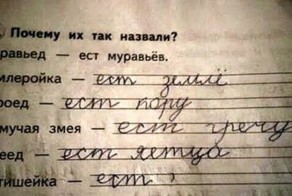 Почему их так назвали?
равьед — ест муравьёв.
млеройка — ест землё
роед — ест кору
мучая змея — ест гречу
еед — ест яетца
тишейка — ест